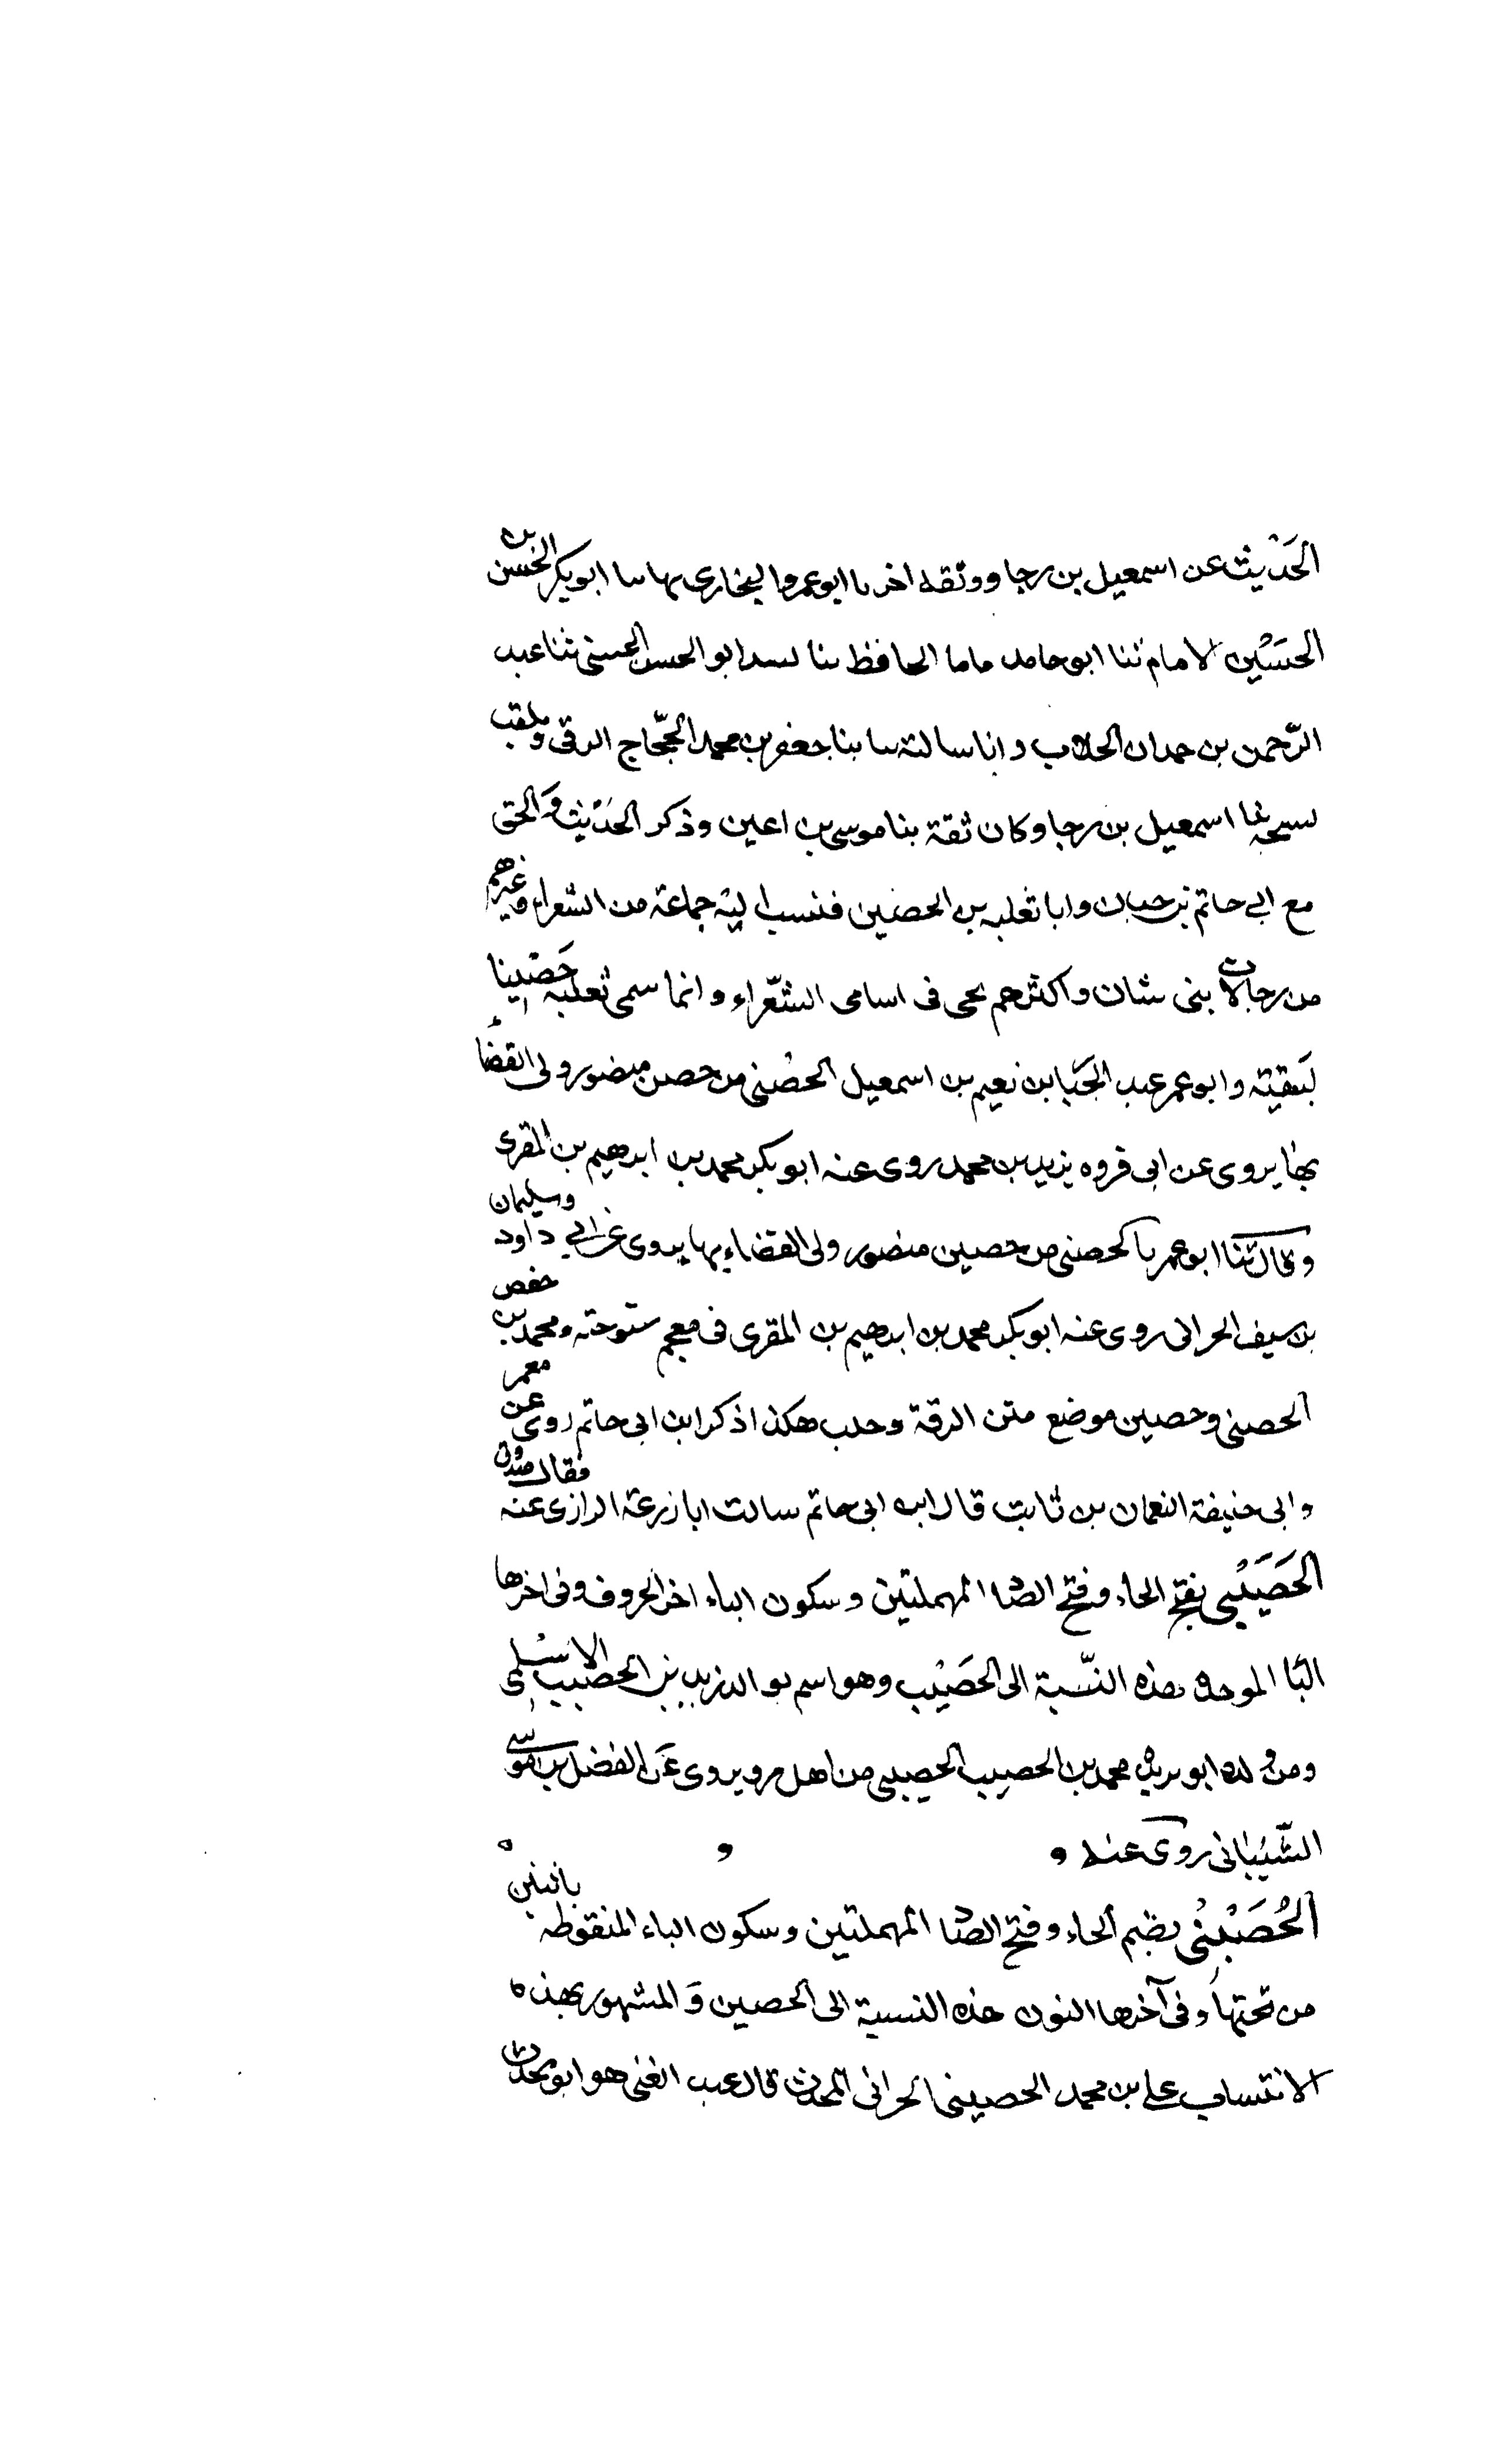 الحَدْيث عن اسمعيل بن رجا ووثقه اخرنا ابوعمرو البخارى بها سا ابوبكر الحسن بن
الحسَيْن الامام ثنا ابوحامد الحافظ بنا ابو الحسن الحسنى ثنا عبد
الرّحمن بن حمدان الجلاب و انا سالته بنا جعفر بن محمد الحجّاج الرقى وملقب
اسمعيل بن رجا وكان ثقة بنا موسى بن اعين وذكر الحدَيْث وَالحق
مع ابى حاتم بن حبان وابا ثعلبه بن الحضين فنسب اليه جماعة من الشعراء وغيرهم
من رجالات بنى شان واكثرهم يحى فى اسامى الشعّراء و انما سمى ثعلبه حَضينا
وابوعمر عبد الجبَا بن نعيم بن اسمعيل الحصْنى من حصن منصور ولى القضَاء
بها يروى عن ابى فروه يزيد بن محمد روى عنه ابو بكر محمد بن ابرهيم بن المقرى
وقال ثنا ابوعمر الحصنى من حصين منصور ولى القضاء بها يروى عن ابى داود وسليمان
بن سيف الحرانى روى عنه ابو بكر محمد بن ابرهيم بن المقرى فى معجم شيوخه ومحمد بن حفص
الحصينى وحصين موضع متن الرقة وحلب هكذا ذكر ابن ابى حاتم روى عن معمر
وابى حنيفة النعمان بن ثابت قال ابن ابى حاتم سالت ابا زرعة الرازى عنه فقال صدوق
الحَصَيْبى بفتح الحاء وفتح الصاد المهملتين وسكون الياء اخر الحروف وفى اخرها
البَا الموحده هذه النّسبة الى الحصَيْب وهو اسم بن الحصيب الاسْلمى
ومن ولده ابو بريده محمد بن الحصيب الحصيبى من اهل مرو يروى عَن الفضل بن موسى
الشّيْبانى روى عنه
الحُصَيْنىْ بضم الحاء وفتح الصاد المهملتين وسكون الياء المنقوطه باثنين
من تحتها وفى آخرها النون هذه النسبة الى الحصين وَالمشهور بهذه
الانتساب على بن محمد الحصينى الحرانى المحدث قال عبد الغنى هو ابو محدث